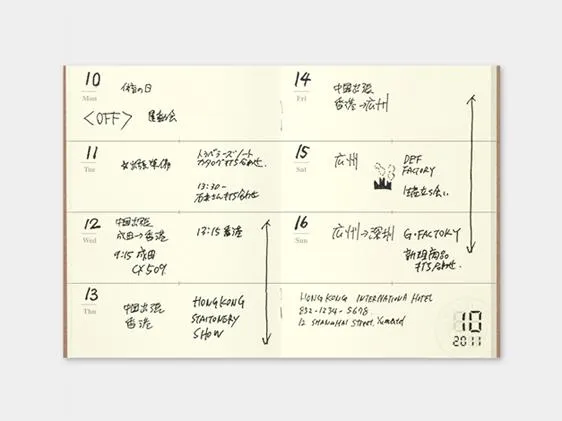 10
Mon
体育の日
<OFF> 運動会
11
Tue
出張準備
トラベラーズノート
カタログ打ち合わせ.
13:30〜
石井さん打ち合わせ
12
Wed
中国出張
成田→香港
9:15 成田
CX509
13:15 香港
13
Thu
中国出張
香港
HONGKONG
STATIONERY
SHOW
14
Fri
中国出張
香港→広州
15
Sat
広州
DEF
FACTORY
16
Sun
広州→深圳
G・FACTORY
新規商品
打ち合わせ.
HONG KONG INTERNATIONAL HOTEL
852-1234-5678.
12 SHANGHAI Street, Yumatei
10
2011